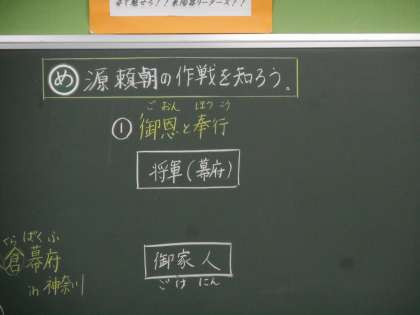 め 源頼朝の作戦を知ろう。
ごおん ほうこう
① 御恩と奉行
将軍(幕府)
御家人
ごけにん
くら ばくふ
倉幕府
in 神奈川